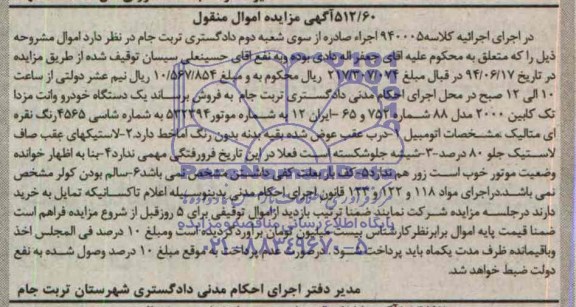 ۵۱۲/۶۰آگهی مزایده اموال منقول
در اجرای اجرائیه کلاسه۹۴۰۰۰۵ اجراء صادره از سوی شعبه دوم دادگستری تربت جام در نظر دارد اموال مشروحه
ذیل را که متعلق به محکوم علیه آقای روح اله دادی بوده وبه نفع آقای حسینعلی سیسان توقیف شده از طریق مزایده
در تاریخ ۹۴/۰۶/۱۷ در قبال مبلغ ریال محکوم به و مبلغ ۱۰/۵۶۷/۸۵۴ ریال نیم عشر دولتی از ساعت
۱۰ الی ۱۲ صبح در محل اجرای احکام مدنی دادگستری تربت جام به فروش برساند یک دستگاه خودرو وانت مزدا
تک کابین ۲۰۰۰ مدل ۸۸ شماره ۷۵۲ و ۶۵ -ایران ۱۲ به شماره موتور۵۲۲۳۹۴ به شماره شاسی ۴۵۶۵رنگ نقره
ای متالیک مشخصات اتومبیل ۱-درب عقب عوض شده بقیه بدنه بدون رنگ اماخط دارد.۲-لاستیکهای عقب صاف
لاستیک جلو ۸۰ درصد-۳-شیشه جلوشکسته است فعلا در این تاریخ فرورفتگی مهمی ندارد۴-بنا به اظهار خوانده
وضعیت موتور خوب است زور هم ندارد۵-کف بار بعلت کفی داشتن مشخص نمی باشد۶-سالم بودن کولر مشخص
نمی باشد.دراجرای مواد ۱۱۸ و ۱۲۲ و ۱۳۳ قانون اجرای احکام مدنی بدینوسیله اعلام تاکسانیکه تمایل به خرید
دارند درجلسه مزایده شرکت نمایند ضمنا ترتیب بازدید ازاموال توقیفی برای ۵ روزقبل از شروع مزایده فراهم است
ضمنا قیمت پایه اموال برابرنظرکارشناس بیست میلیون تومان برآوردگردیده است ومبلغ ۱۰ درصد فی المجلس اخذ
وباقیمانده ظرف مدت یکماه باید پرداخت شود .درصورت عدم پرداخت به موقع مبلغ ۱۰ درصد وصول شده به نفع
دولت ضبط خواهد شد.
مدیر دفتر اجرای احکام مدنی دادگستری شهرستان تربت جام
پایگاه اطلاع رسانی مناقصه و مزایده
۰۲۱-۸۸۳۴۹۶۷۰-۵